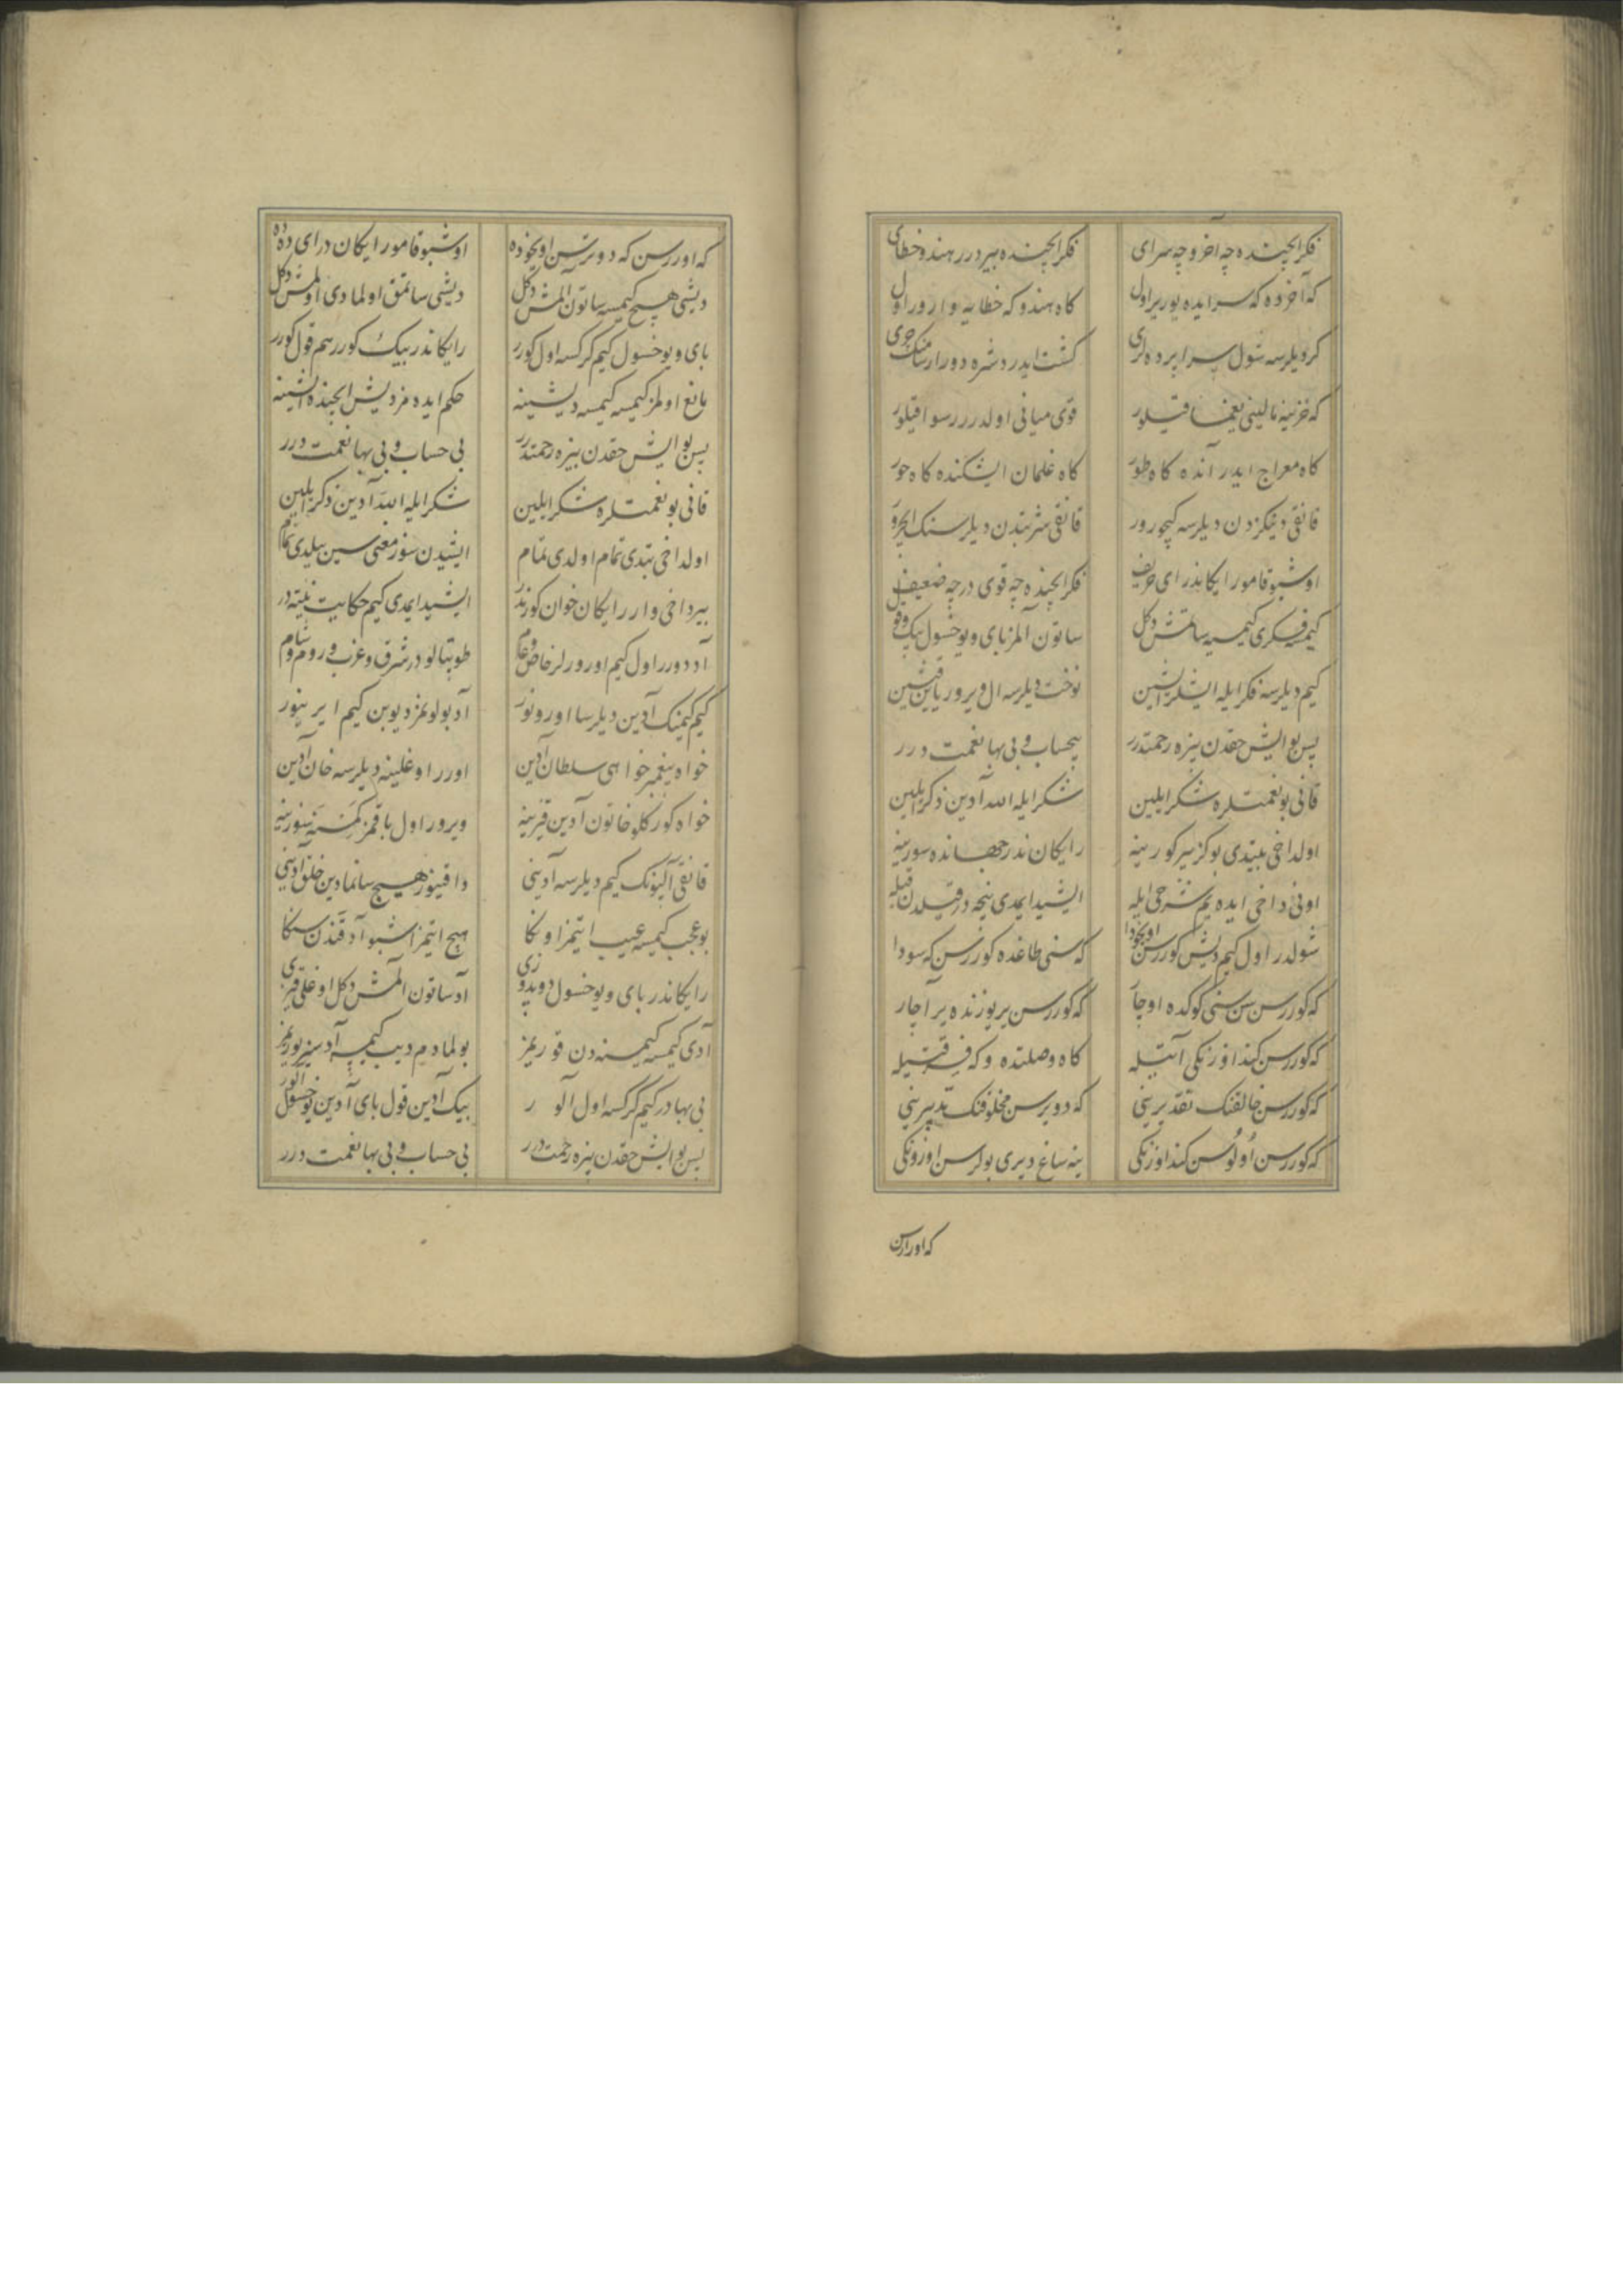 فکر ایچنده چه آخر و چه سرای فکر ایچنده بیردرر هند و خطای
که آخرده که سرایده یورر اول کاه هندو که خطایه وارور اول
کر دیلرسه شول سراپرده لری کشت ایدر دشره دورار
که خزینه مالینی یغما قیلور قوی میانی اولدرر رسوا قیلور
کاه معراج ایدر آنده کاه طور کاه غلمان ایشکنده کاه حور
قانقی دیکزدن دیلرسه کیچورور قانقی شربتدن دیلرسنک ایچرور
اوشبو قامو رایکاندر ای حریف فکر ایچنده چه قوی درچه ضعیف
کیمسه فکری کیمسیه ساتمش دکل ساتون آلمز بای و یوخسول بیک و قول
کیم دیلرسه فکر ایله ایشلر ایشین نوخت دیلرسه ال ویرور یایین قیشین
پس بو ایش حقدن بزه رحمتدرر بیحساب و بی بها نعمت درر
قانی بو نعمتلره شکر ایلین شکر ایله الله آدین ذکر ایلین
اولداخی بیتدی بو کز بیر کورینه رایکان ندر جهانده سورینه
اونی داخی ایده یم شرحی ایله ایشید ایمدی نیجه در قیلدن قیله
شولدر اول کیم دیش کوررسن اویخودا که سنی طاغده کوررسن که سودا
که کوررسن سن سنی کوکده اوجار که کوررسن یر یوزنده یر آچار
که کوررسن کنداوزنکی آتیله کاه وصلتده و که فرقتیله
که کوررسن خالقنک تقدیرینی که دویرسن مخلوقنک تدبیرینی
که کوررسن اولوسن کنداوزنکی ینه ساغ دیری بولرسن اوزونکی
که اوررسن
که اوررسن که دویرسن اویخوده اوشبو قامو رایکان درای دده
دیشی هیچ کیمسه ساتون آلمش دکل دیشی ساتمق اولمادی اولمش دکل
بای و یوخسول کیم کرکسه اول کورر رایکاندر بیک کورر هم قول کورر
مانع اولمز کیمسه کیمسه دیشینه حکم ایده مز دیش ایچنده ایشینه
پس بو ایش حقدن بزه رحمتدرر بی حساب و بی بها نعمت درر
قانی بو نعمتلره شکر ایلین شکر ایله الله آدین ذکر ایلین
اولداخی بتدی تمام اولدی تمام ایشیدن سوز معنی سین بیلدی تمام
بیرداخی وارر رایکان خوان کوزندر ایشید ایمدی کیم حکایت نیته در
آد دورر اول کیم اورورلر خاص و عام طوپتالودر شرق و غرب و روم و شام
کیم کیمنک آدین دیلرسا اورونور آد بولونمز دیوبن کیم ایرینور
خواه پیغمبر خواهی سلطان آدین اورر اوغلینه دیلرسه خان آدین
خواه کورکلو خاتون آدین قیزینه ویرور اول باقمز کمسنه یوزینه
قانقی آلپونک کیم دیلرسه آدینی داقینور هیچ سانمادین خلق آدینی
بو عجب کیمسه عیب ایتمز اونکا هیچ ایتمز اشبو آد قندن سنکا
رایکاندر بای و یوخسول آد ساتون آلمش دکل اوغلی قیزی
آدی کیمسه کیمسنه دن قوریمز بولمادم دیب کیمسه آدسیز یوریمز
بی بها در کیم کرکسه اول آلور بیک آدین قول بای آدین یوخسول آلور
پس بو ایش حقدن بزه رحمت درر بی حساب و بی بها نعمت درر